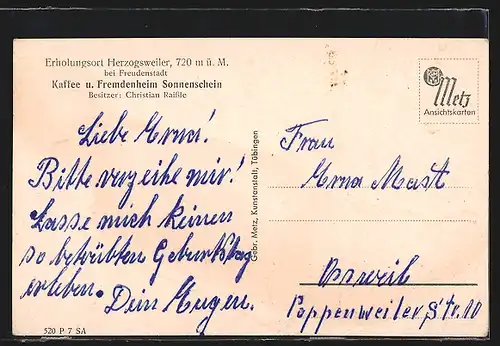 Erholungsort Herzogsweiler, 720 m ü. M.
bei Freudenstadt
Kaffee u. Fremdenheim Sonnenschein
Besitzer: Christian Raißle
Liebe Erna!
Bitte verzeihe mir!
Lasse mich keinen
so betrübten Geburtstag
erleben.
Dein Eugen.
520 P 7 SA
Gebr. Metz, Kunstanstalt, Tübingen
Metz
Ansichtskarten
Frau
Erna Mast
Ossweil
Poppenweiler Str. 10